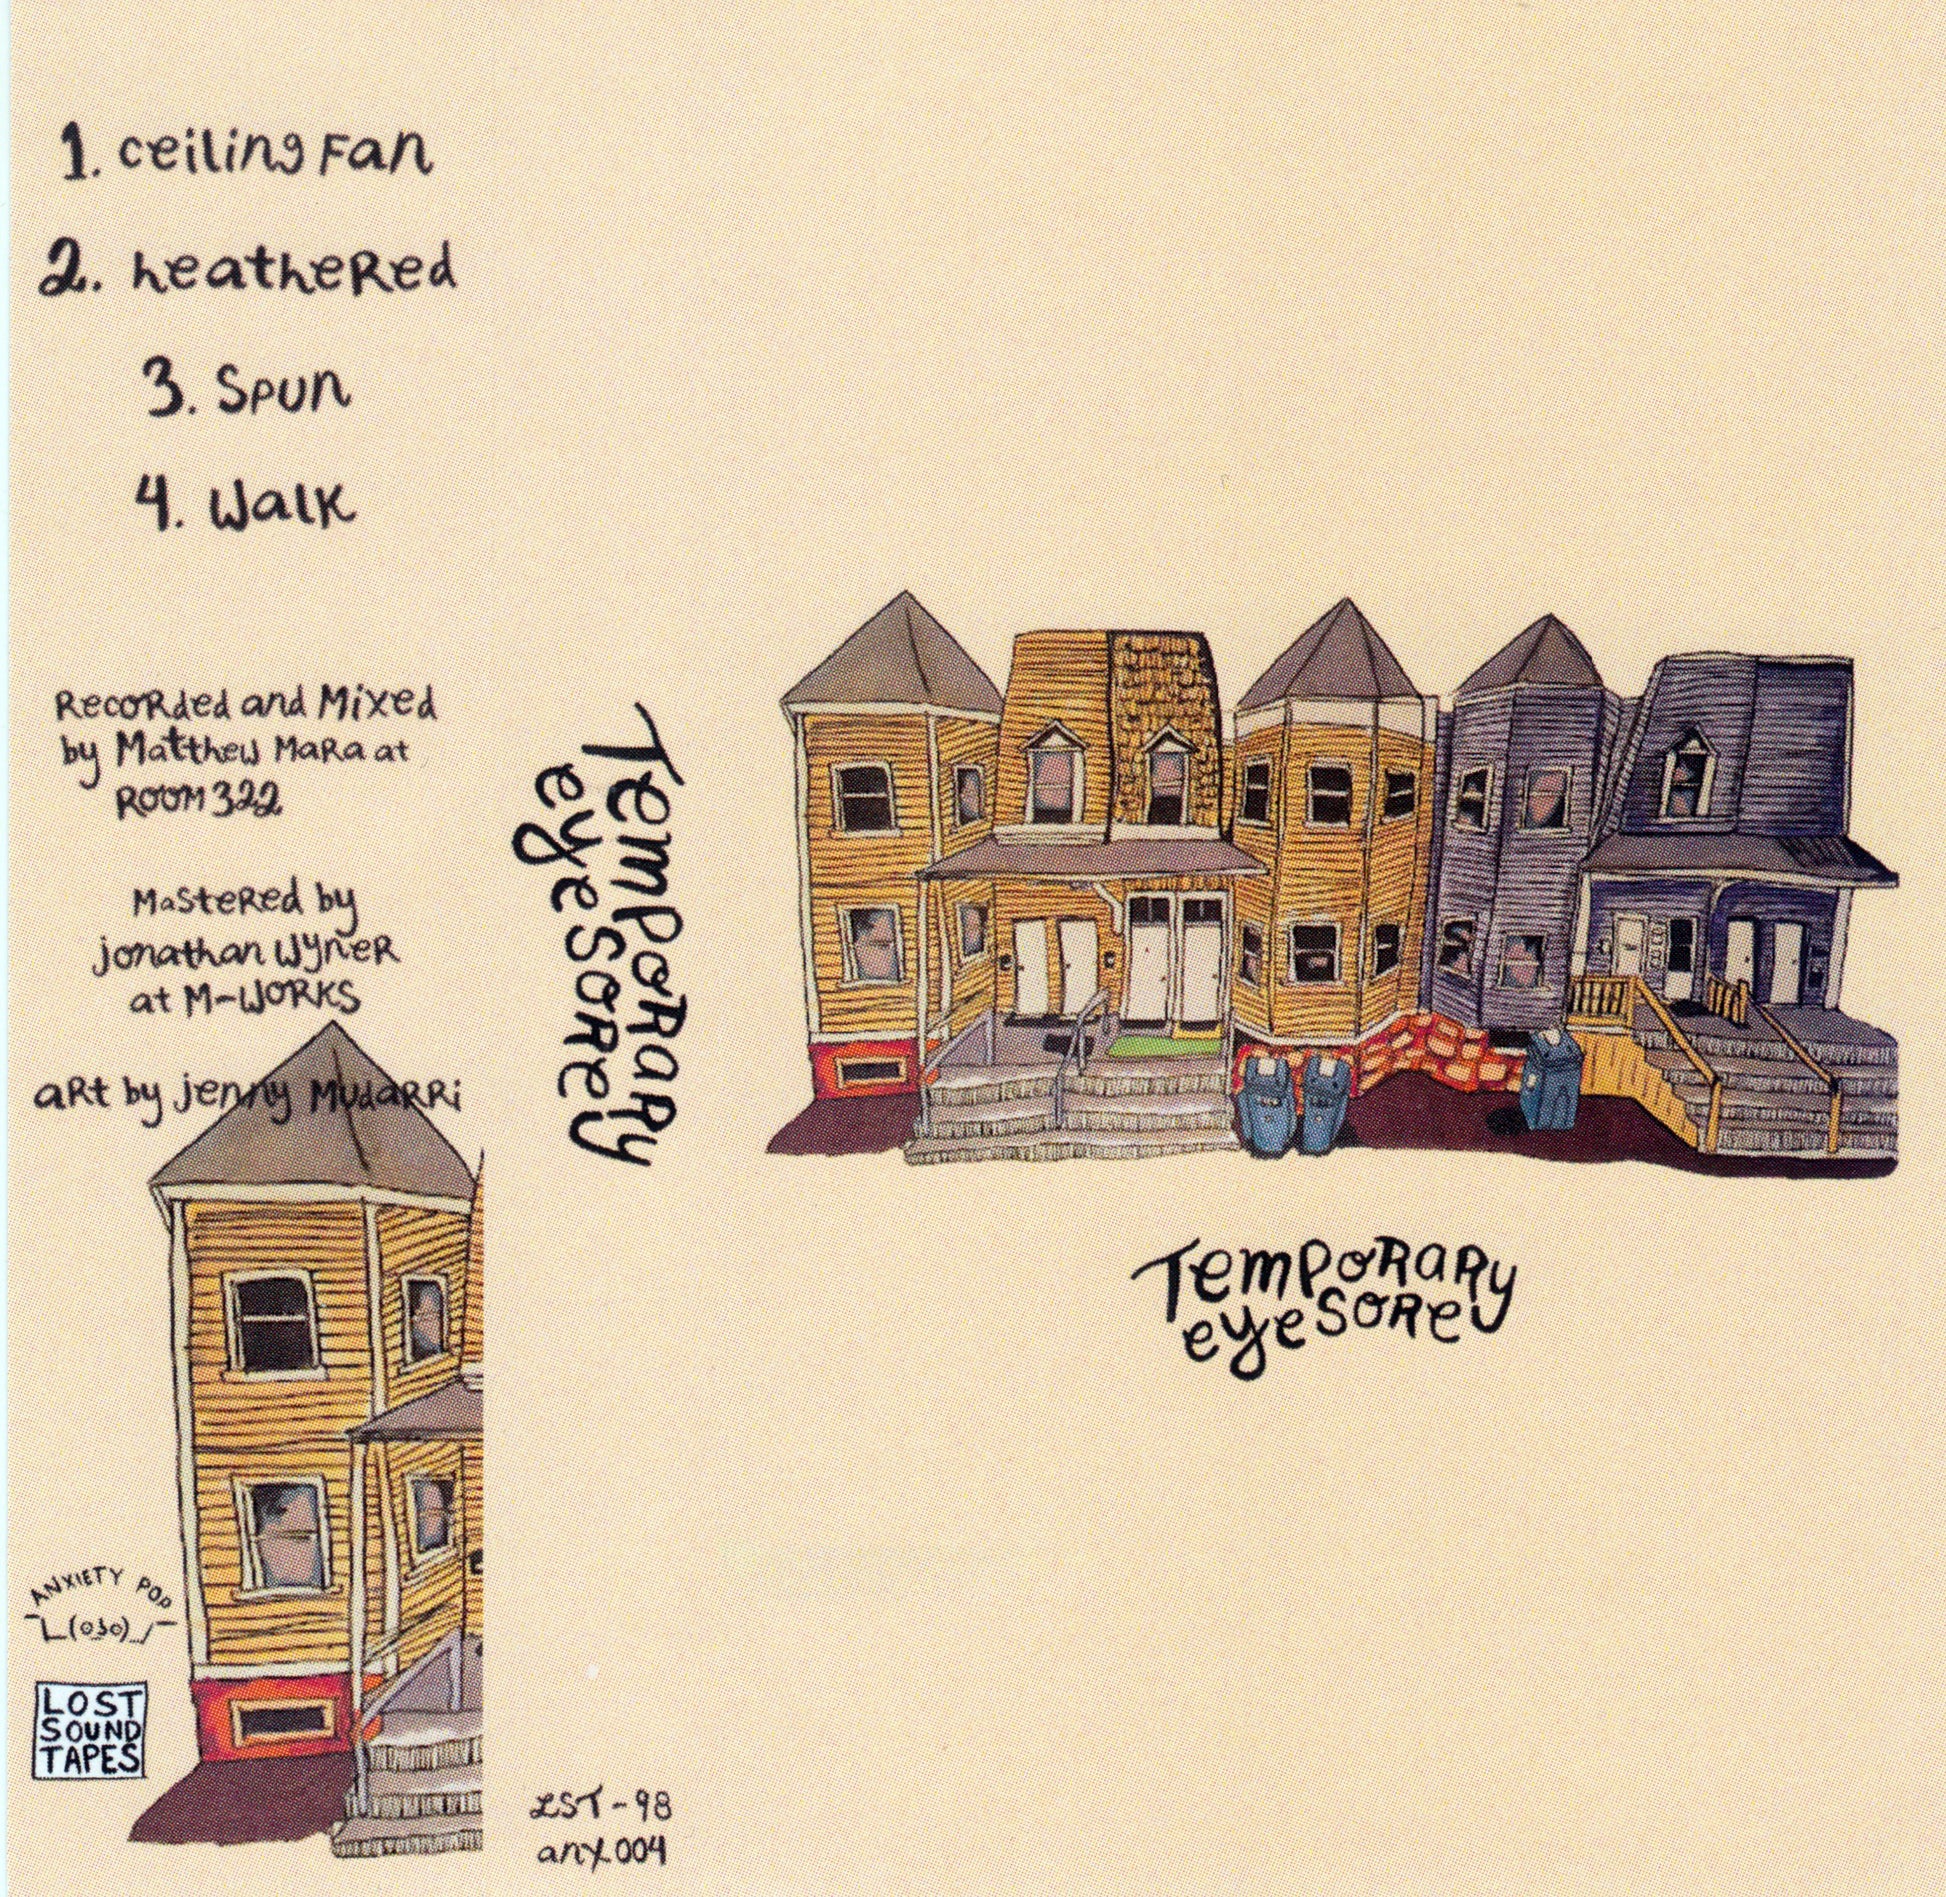 1. ceiling Fan
2. heatheRed
3. Spun
4. Walk
RecoRded and Mixed
by Matthew MaRa at
ROOM 322
MasteRed by
jonathan WyneR
at M-WORKS
aRt by jenny MudaRRi
ANXIETY POP
¯\_(oJo)_/¯
LOST
SOUND
TAPES
TempoRaRy
eyesoRe
LST-98
anx.004
TempoRaRy
eyesoRe